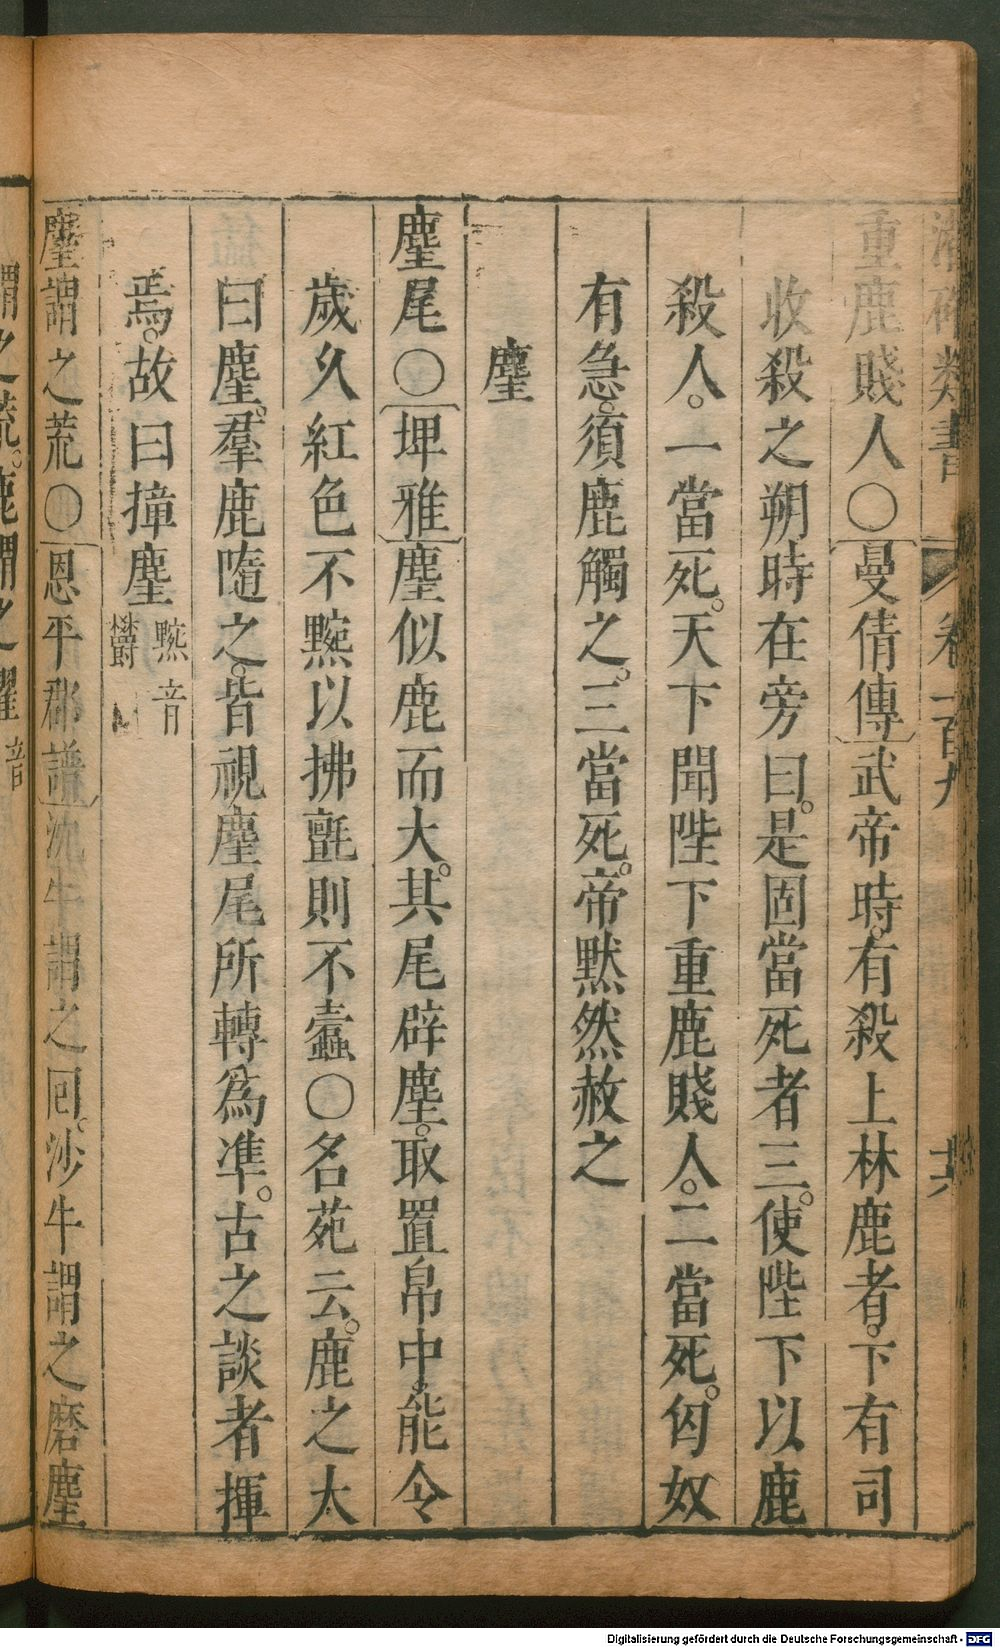 潛確類書 卷一百九 十六
重鹿賤人○曼倩傳武帝時。有殺上林鹿者。下有司
收殺之朔時在旁曰。是固當死者三。使陛下以鹿
殺人。一當死。天下聞陛下重鹿賤人。二當死。匈奴
有急。須鹿觸之。三當死。帝默然赦之
麈
麈尾○埤雅麈似鹿而大。其尾辟塵。取置帛中。能令
歲久紅色不黦以拂氈則不蠹○名苑云。鹿之大
曰麈。羣鹿隨之。皆視麈尾所轉為準。古之談者揮
焉。故曰撞麈 黦音
麈謂之荒○恩平郡譜沈牛謂之囘。沙牛謂之磨麈
謂之荒。鹿謂之擢音
Digitalisierung gefördert durch die Deutsche Forschungsgemeinschaft - DFG